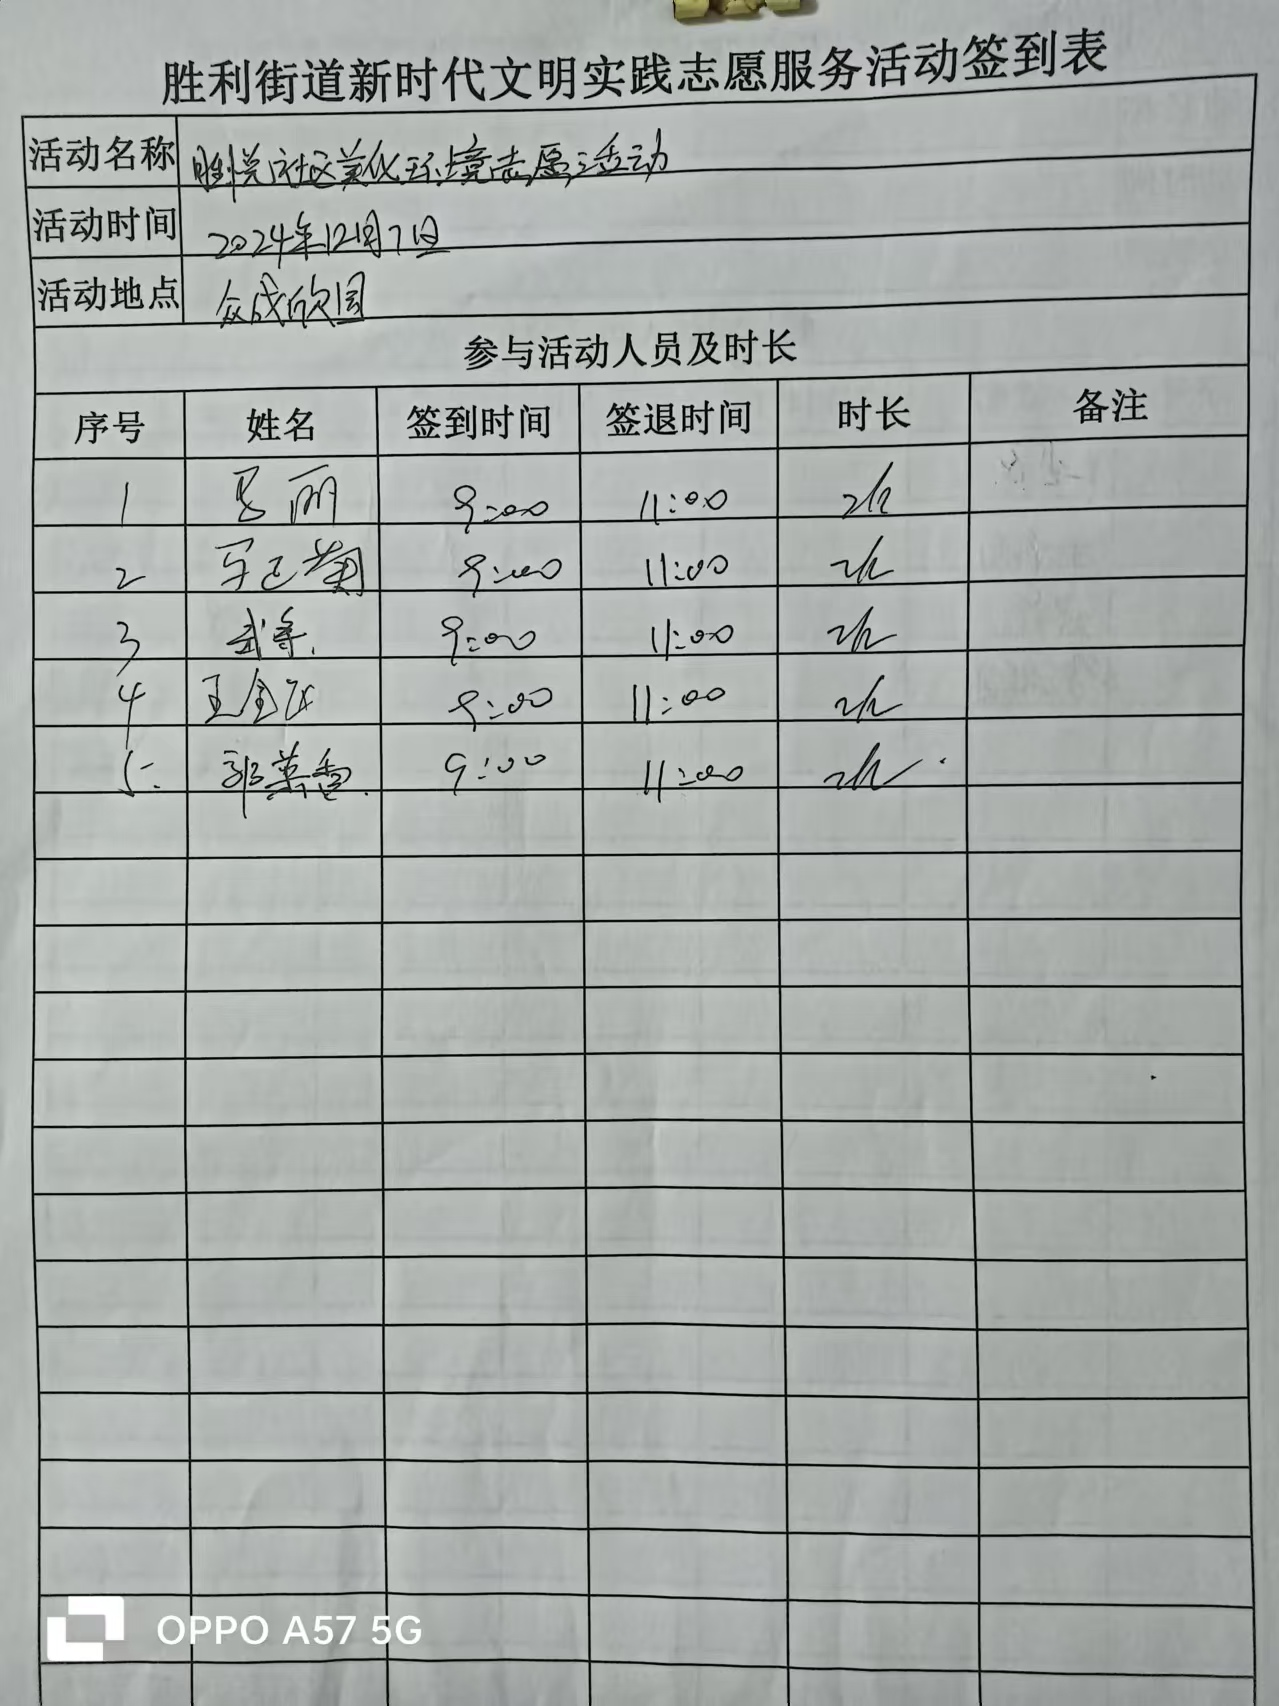 胜利街道新时代文明实践志愿服务活动签到表
活动名称 胜悦社区美化环境志愿活动
活动时间 2024年12月7日
活动地点 众成欣园
参与活动人员及时长
序号 姓名 签到时间 签退时间 时长 备注
1 马丽 9:00 11:00 2h
2 9:00 11:00 2h
3 9:00 11:00 2h
4 王金 9:00 11:00 2h
5. 郭英香. 9:00 11:00 2h
OPPO A57 5G